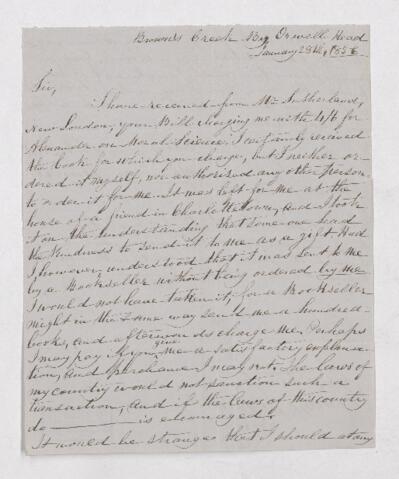 Browns Creek By Orwell Head
January 28th, 1856
Sir,
I have received from Mr. Sutherland,
New London, your Bill charging me with 4/6 for
Alexander on Moral Science, I certainly received
the book for which you charge, but I neither or-
dered it myself, nor authorized any other person
to order it for me. It was left for me at the
house of a friend in Charlottetown, and I took
it on the understanding that some one had
the kindness to send it to me as a gift. Had
I, however, understood that it was sent to me
by a Bookseller without being ordered by me
I would not have taken it, for a Bookseller
might in the same way send me a hundred
books, and afterwards charge me. Perhaps
I may pay if you give me a satisfactory explana-
tion, and perchance I may not. The laws of
my country would not sanction such a
transaction, and if the laws of this country
do is encouraged.
It would be strange that I should at any